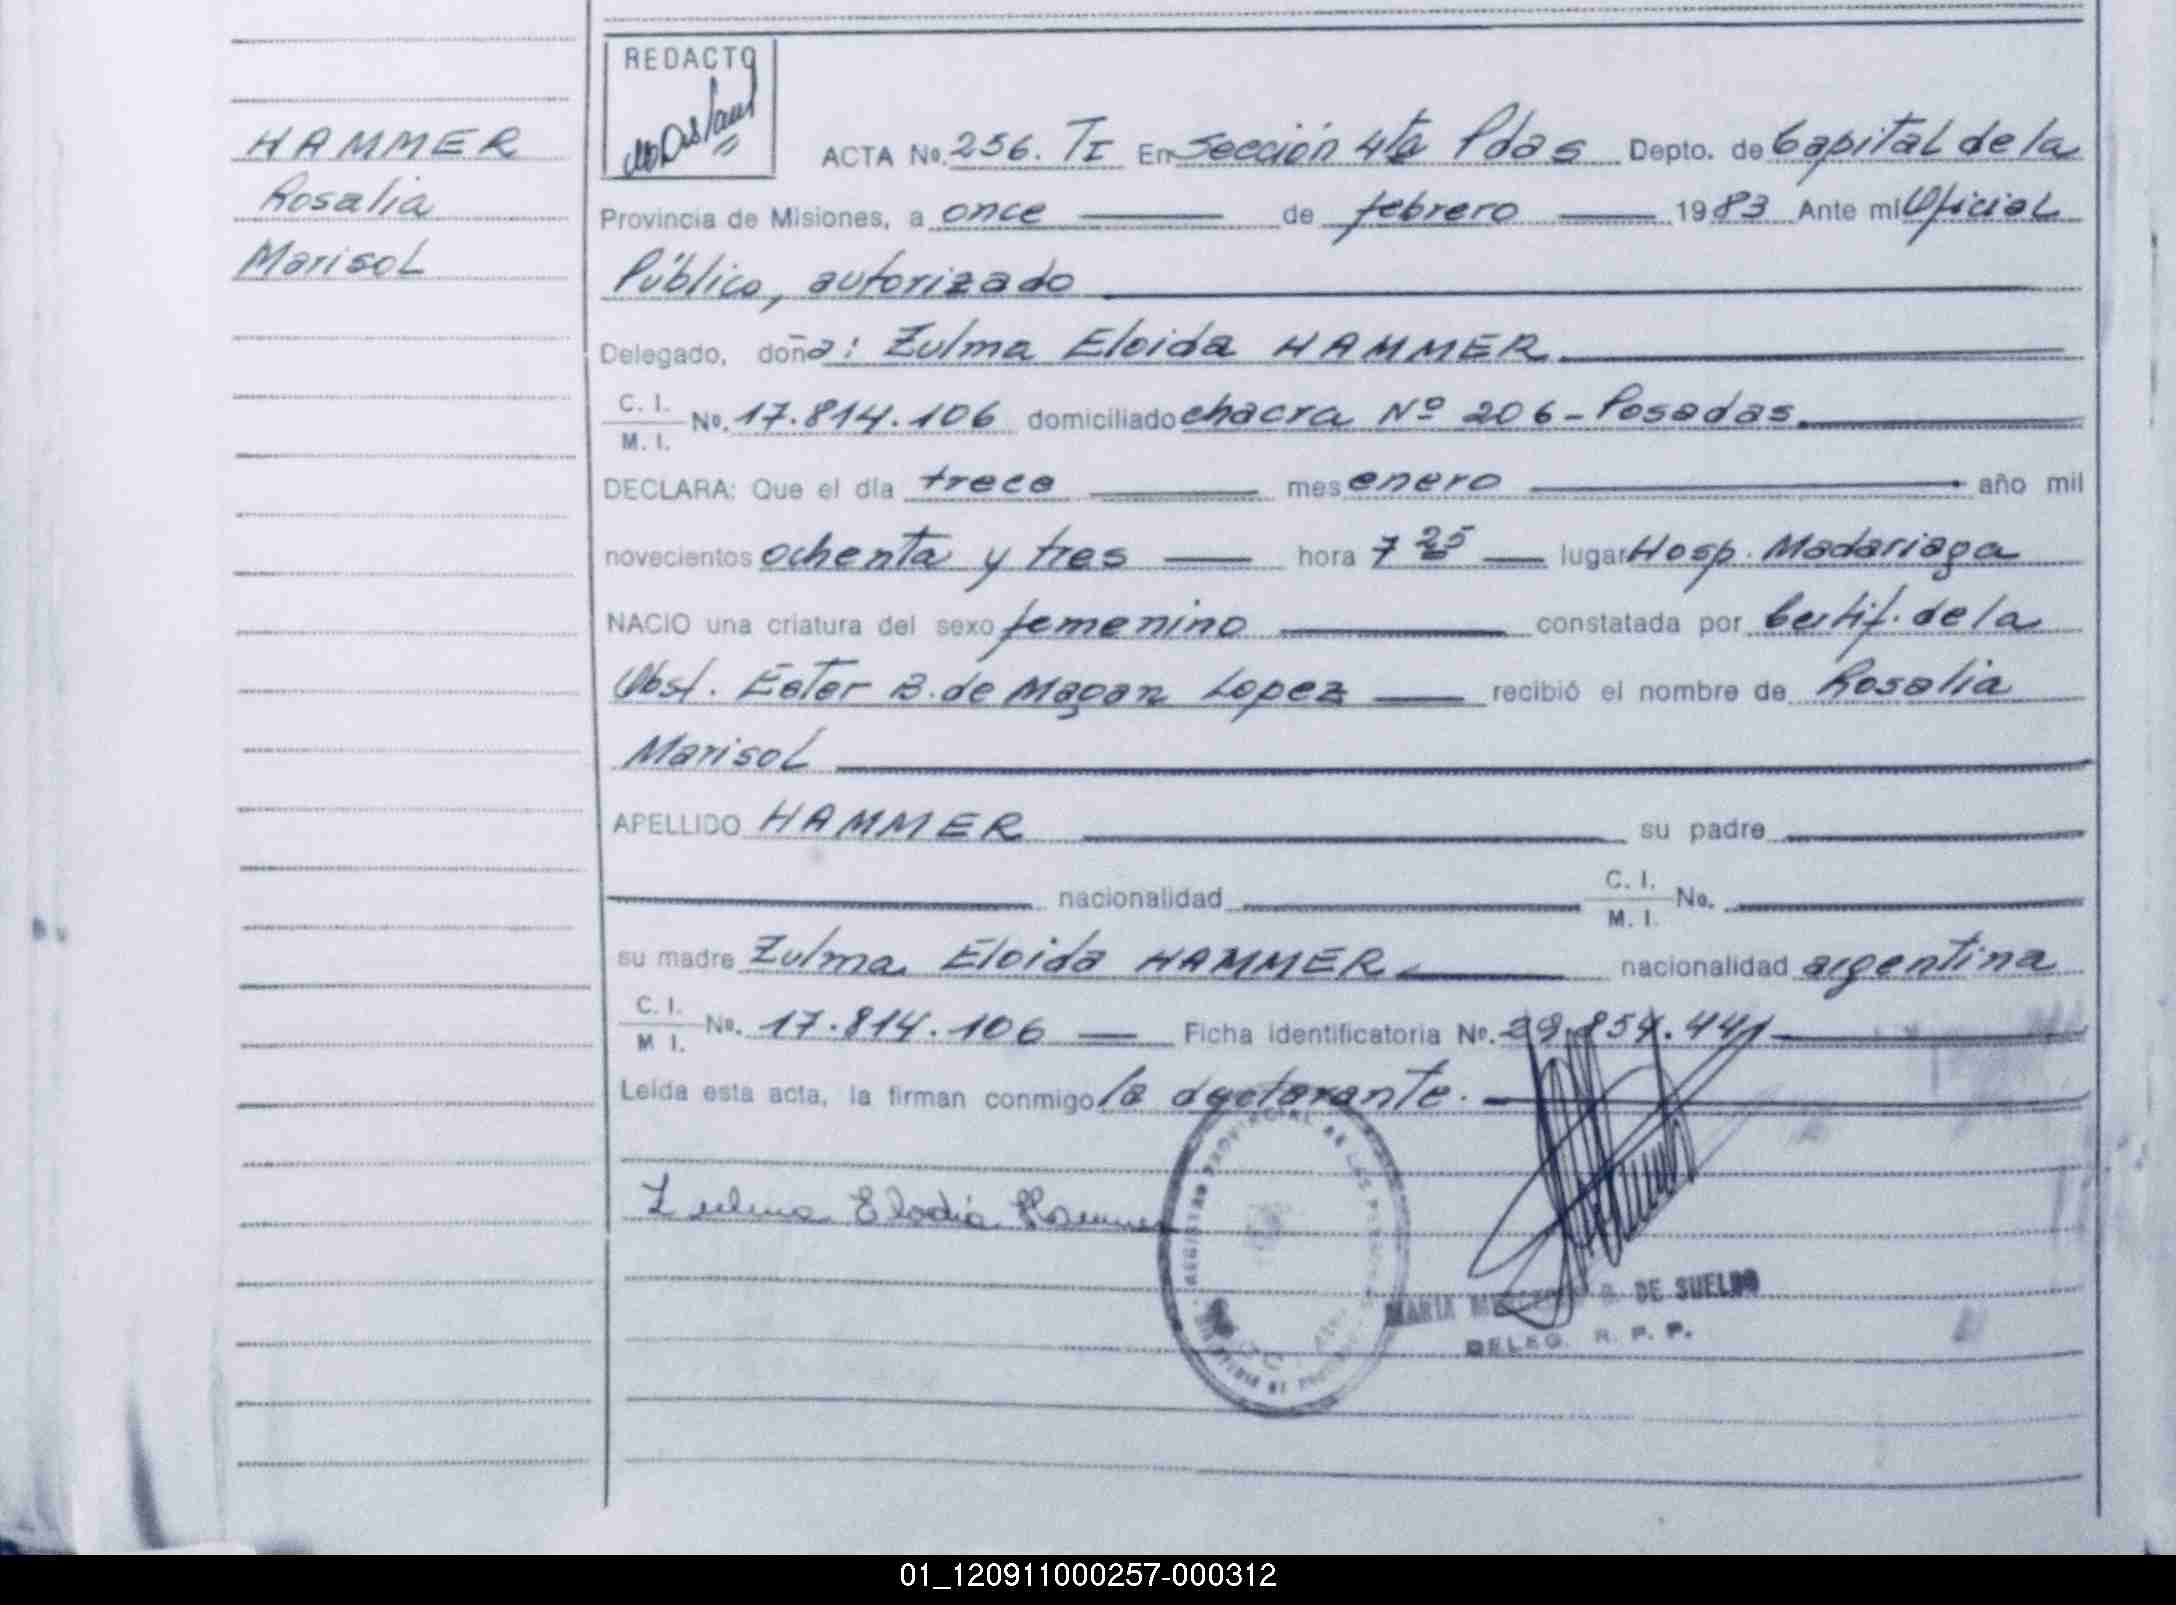 HAMMER
Rosalia
Marisol
REDACTO
ACTA No. 256. TI En Sección 4ta Pdas Depto. de Capital de la
Provincia de Misiones, a once de febrero 1983 Ante mí Oficial
Público, autorizado
Delegado, doña: Zulma Eloida HAMMER
C. I.
M. I.
No. 17.814.106 domiciliado chacra Nº 206 - Posadas.
DECLARA: Que el día trece mes enero año mil
novecientos ochenta y tres hora 7 25 lugar Hosp. Madariaga
NACIO una criatura del sexo femenino constatada por Certif. de la
Obst. Ester B. de Magan Lopez recibió el nombre de Rosalia
Marisol
APELLIDO HAMMER su padre
nacionalidad C. I. M. I. No.
su madre Zulma Eloida HAMMER nacionalidad argentina
C. I.
M I.
No. 17.814.106 Ficha identificatoria No. 29.854.441
Leída esta acta, la firman conmigo la declarante.
Zulma Elodia Hammer
REGISTRO PROVINCIAL DE LAS PERSONAS
MARIA B. DE SUELDO
DELEG. R. P. P.
01_120911000257-000312